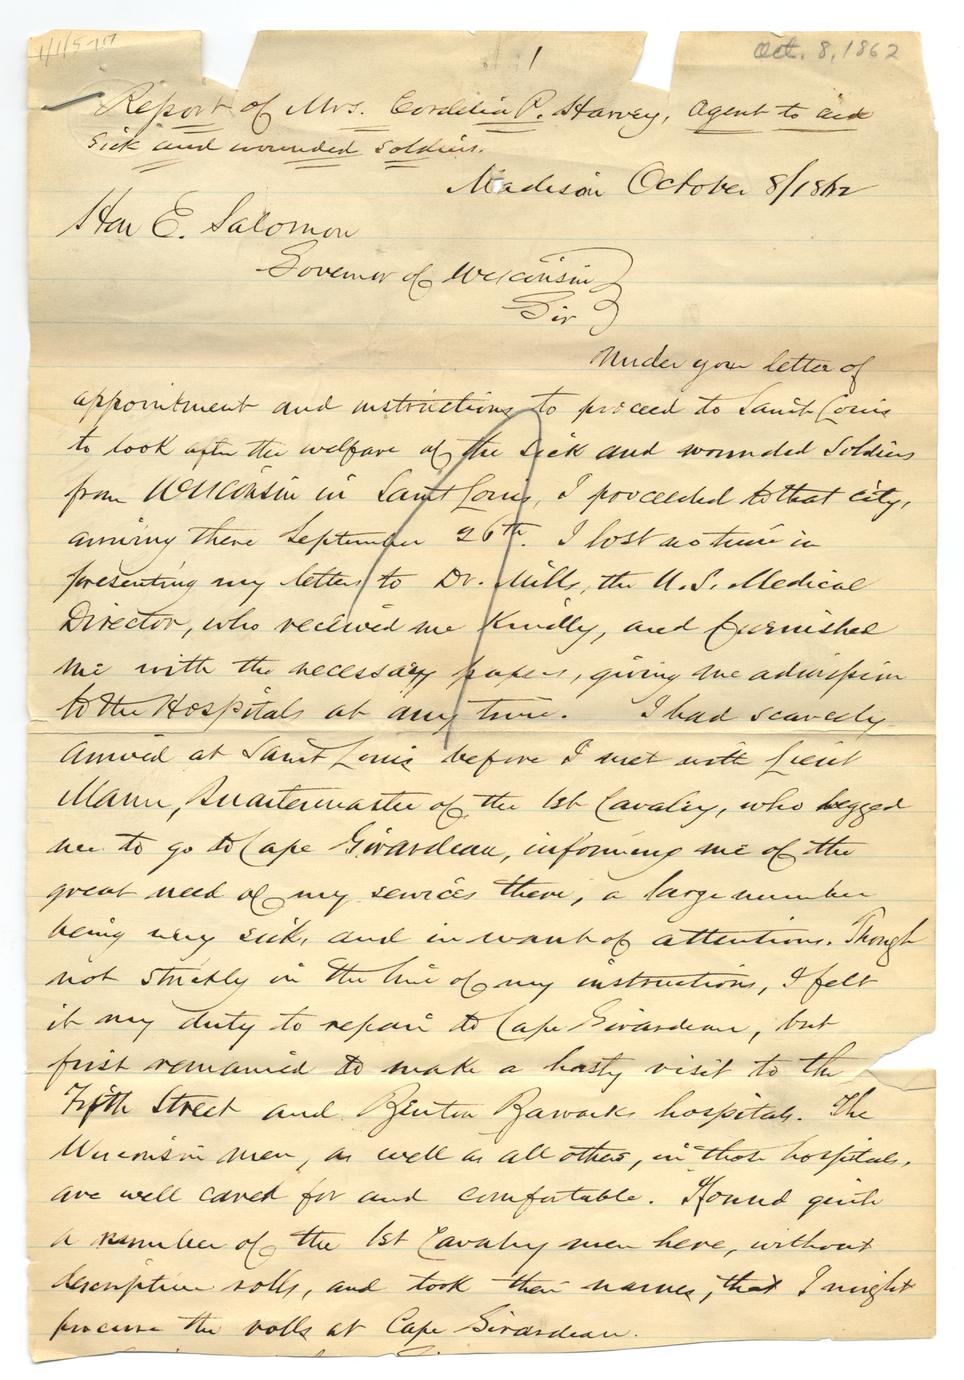 1
Oct. 8, 1862
Report of Mrs. Cordelia P. Harvey, agent to aid
sick and wounded soldiers.
Madison October 8/1862
Hon E. Salomon
Governor of Wisconsin
Sir
Under your letter of
appointment and instructions to proceed to Saint Louis
to look after the welfare of the sick and wounded Soldiers
from Wisconsin in Saint Louis, I proceeded to that city,
arriving there September 26th. I lost no time in
presenting my letters to Dr. Mills, the U.S. Medical
Director, who received me kindly, and furnished
me with the necessary papers, giving me admission
to the Hospitals at any time. I had scarcely
arrived at Saint Louis before I met with Lieut
Mann, Quartermaster of the 1st Cavalry, who begged
me to go to Cape Girardeau, informing me of the
great need of my services there, a large number
being very sick, and in want of attentions. Though
not strictly in the line of my instructions, I felt
it my duty to repair to Cape Girardeau, but
first remained to make a hasty visit to the
Fifth Street and Benton Barracks hospitals. The
Wisconsin men, as well as all others, in those hospitals,
are well cared for and comfortable. Found quite
a number of the 1st Cavalry men here, without
descriptive rolls, and took their names, that I might
procure the rolls at Cape Girardeau.